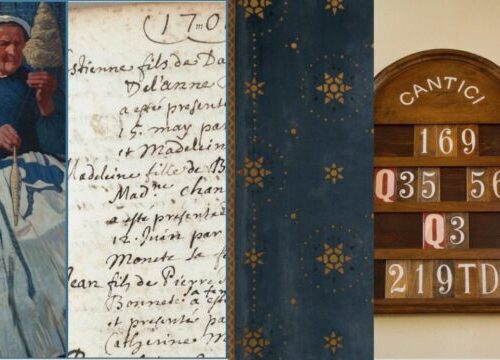 (170
stienne fils de Da
Del'anne
a esté presente
15. may par
et Madelein
Madeleine fille de B
Mad.ne Chan
a este presente
12. Juin par
Monete la f
Jean fils de Pierre
Bonnet a est
et presenté par
Catherine M
CANTICI
169
Q35 56
Q3
219TD